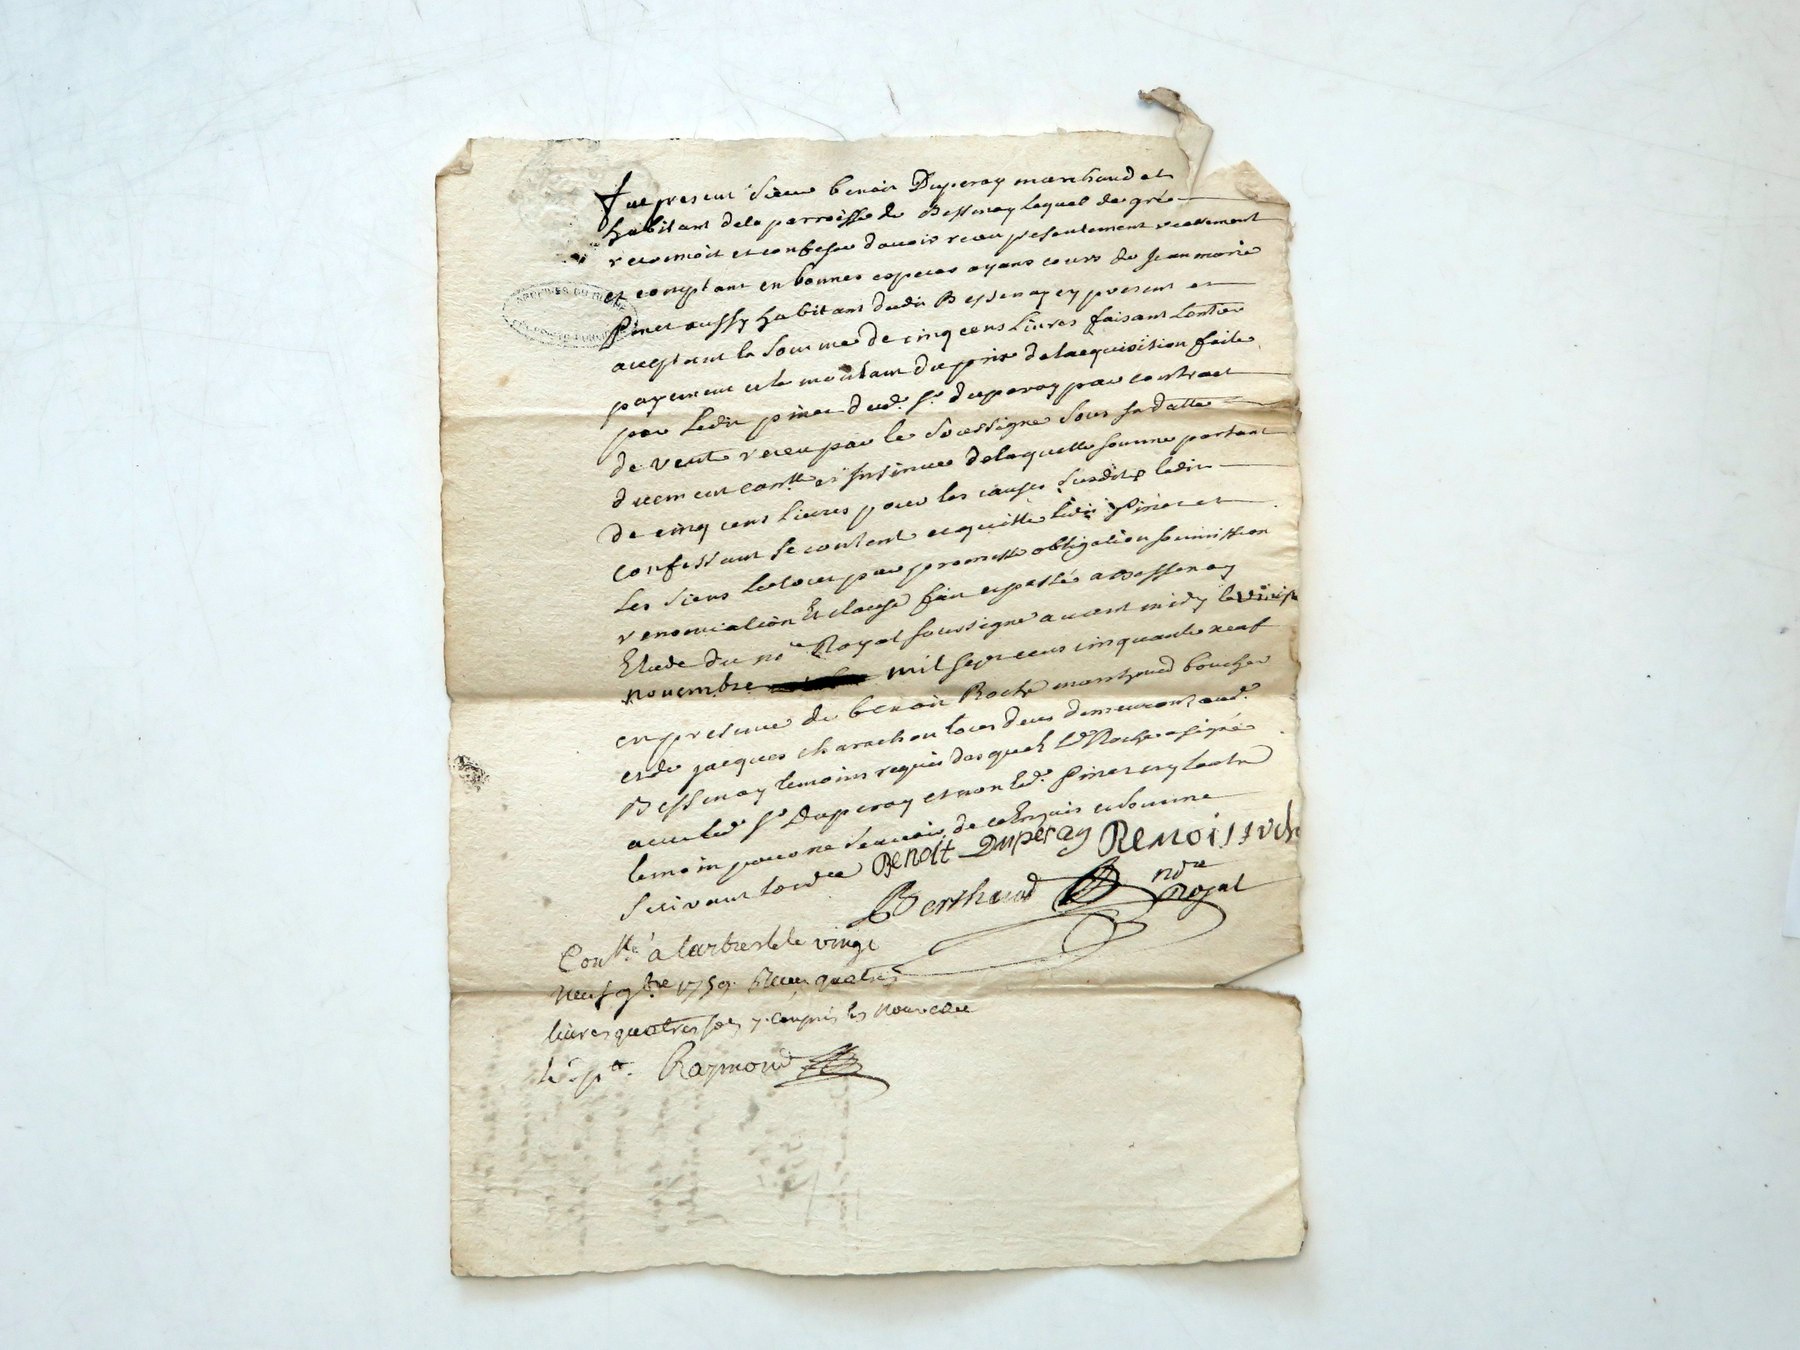 Fut present Sieur benoit Duperay marchand et
habitant dela parroisse de Bessenay lequel de gré
reconnoit et confesse davoir receu presentement reellement
et comptant en bonnes especes ayans cours de Jean marie
Pinet aussy habitant dudit Bessenay cy present et
acceptant la somme de cinq cens Livres faisant Lentier
payement et le montant du prix delacquisition faite
par Ledit pinet dud. Sr. duperay par contract
de vente receu par le soussigné sous sa datte
duement conllé et Insinué delaquelle somme partant
de cinq cens Livres pour les causes susdites ledit
confessant se content et quitte ledit Pinet et
Les siens le tout par promesse obligation soumission
renonciation Et clause fait et passé a Bessenay
Etude du nore Royal soussigné avant midy le
novembre mil sept cens cinquante neuf
en presence de benoit Roche marchand boucher
et de jacques charachon tous deux demeurant aud.
Bessenay temoins requis desquels led Roche a signé
avec led Sr Duperay et non led. Pinet ny lautre
temoin pour ne scavoir de ce Enquis et somme
suivant lordce BENOIT DUPERAY BENOIST
Berthaud nore
Royal
Conllé à larbresle le vingt
neuf 9bre 1759. Receu quatres
livres quatres sols y compris les nouveaux
Raymond